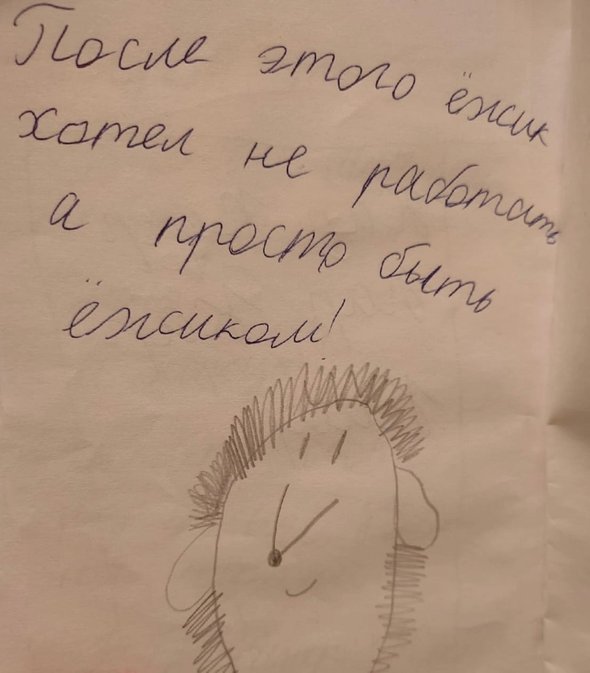 После этого ёжик
хотел не работать
а просто быть
ёжиком!